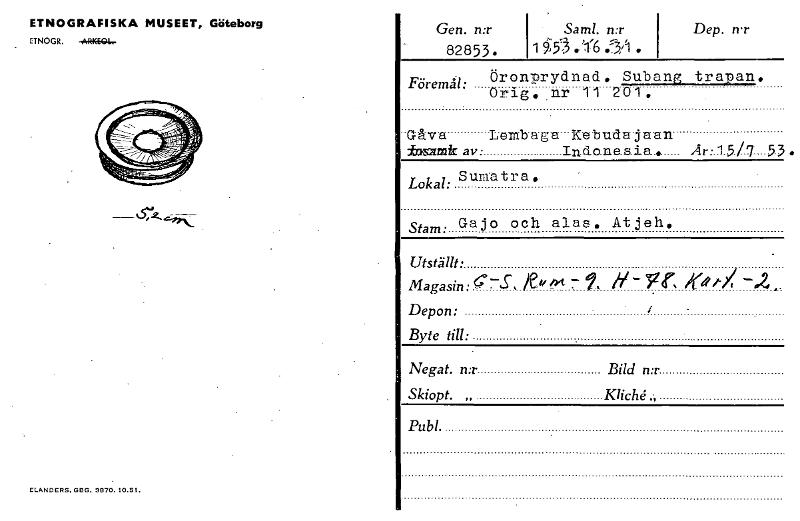 ETNOGRAFISKA MUSEET, Göteborg
ETNOGR. ARKEOL.
5,2 cm
ELANDERS, GBG. 3970. 10.51.
Gen. n:r Saml. n:r Dep. n:r
82853. 1953.16.31.
Föremål: Öronprydnad. Subang trapan.
Orig. nr 11 201.
Gåva Lembaga Kebudajaan
Insaml. av: Indonesia. År: 15/7 53.
Lokal: Sumatra.
Stam: Gajo och alas. Atjeh.
Utställt:
Magasin: G-S. Rum-9. H-78. Kart.-2.
Depon:
Byte till:
Negat. n:r Bild n:r
Skiopt. „ Kliché „
Publ.